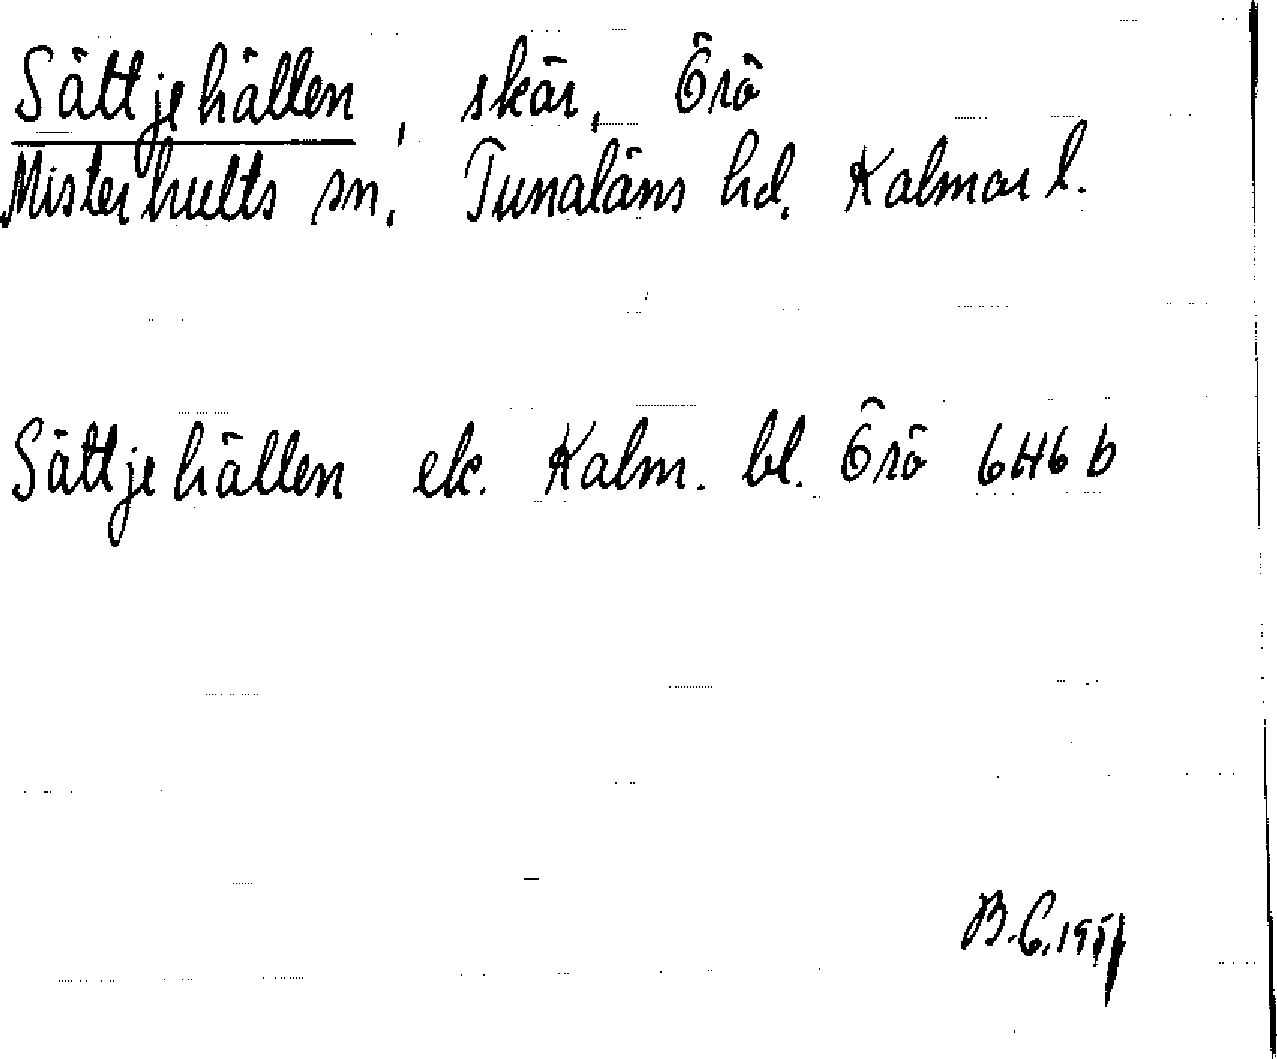 Sättjehällen, skär, Örö
Misterhults sn, Tunaläns hd, Kalmar l.
Sättjehällen ek. Kalm. bl. Örö 6H6 b